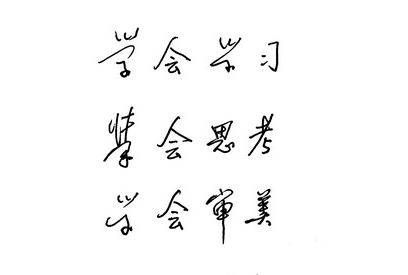 学会学习
学会思考
学会审美